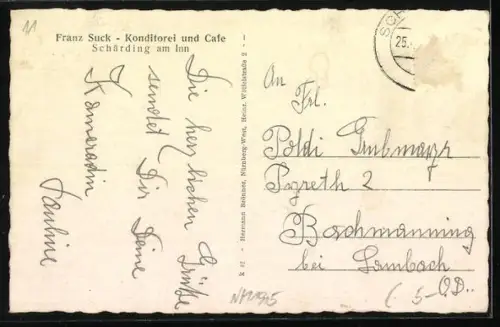 11
Franz Suck - Konditorei und Cafe
Schärding am Inn
Die herzlichen Grüße
sendet Dir Deine
Kameradin
Pauline
Hermann Brünner, Nürnberg-West, Heinr.
SCH
25.
An
Frl.
Poldi Grubmayr
Pyreth 2
Bachmanning
bei Lambach
O.D.